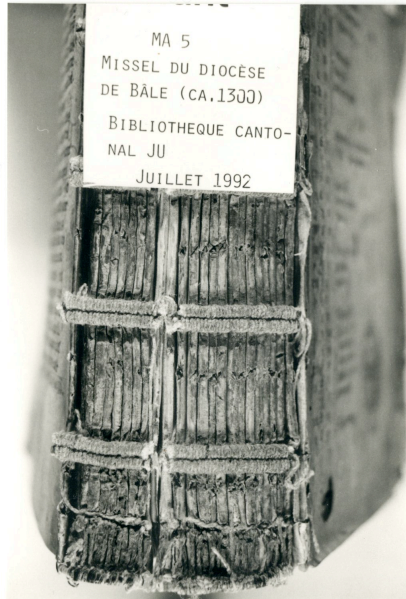 MA 5
MISSEL DU DIOCÈSE
DE BÂLE (CA.1300)
BIBLIOTHEQUE CANTO-
NAL JU
JUILLET 1992